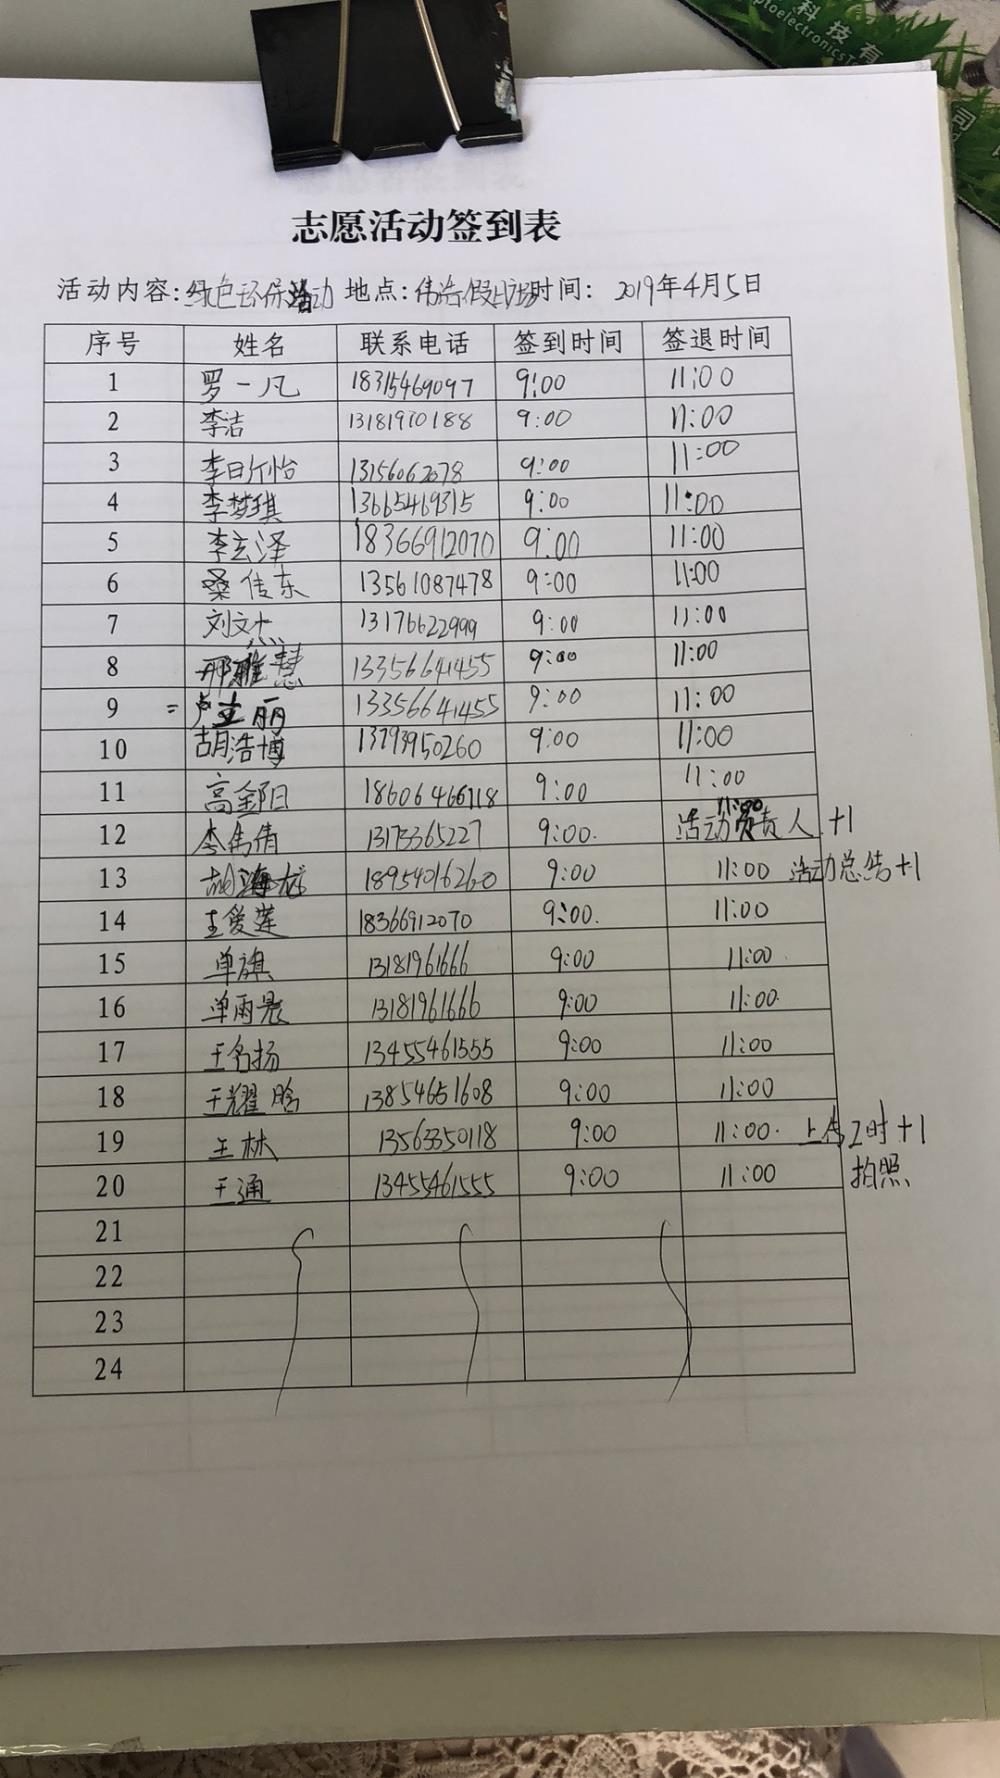 科技有
ptoelectronicsT
司
志愿活动签到表
活动内容:绿色环保活动 地点:伟浩假日广场时间: 2019年4月5日
序号 姓名 联系电话 签到时间 签退时间
1 罗一凡 18315469097 9:00 11:00
2 李洁 13181970188 9:00 11:00
3 李昕怡 13156062078 9:00 11:00
4 李梦琪 13665469315 9:00 11:00
5 李玄泽 18366912070 9:00 11:00
6 桑传东 13561087478 9:00 11:00
7 刘文杰 13176622999 9:00 11:00
8 邢雅慧 13356641455 9:00 11:00
9 = 丽 13356641455 9:00 11:00
10 胡浩博 13793950260 9:00 11:00
11 高鋆阳 9:00 11:00
12 李倩 13173365227 9:00. 11:00 活动负责人 +1
13 胡海龙 18954016260 9:00 11:00 活动总结+1
14 王爱莲 18366912070 9:00. 11:00
15 单旗 13181961666 9:00 11:00
16 单雨晨 13181961666 9:00 11:00
17 王名扬 13455461555 9:00 11:00
18 王耀晗 13854651608 9:00 11:00
19 王林 13563350118 9:00 11:00. 上传2时+1
20 王通 13455461555 9:00 11:00 拍照
21
22
23
24